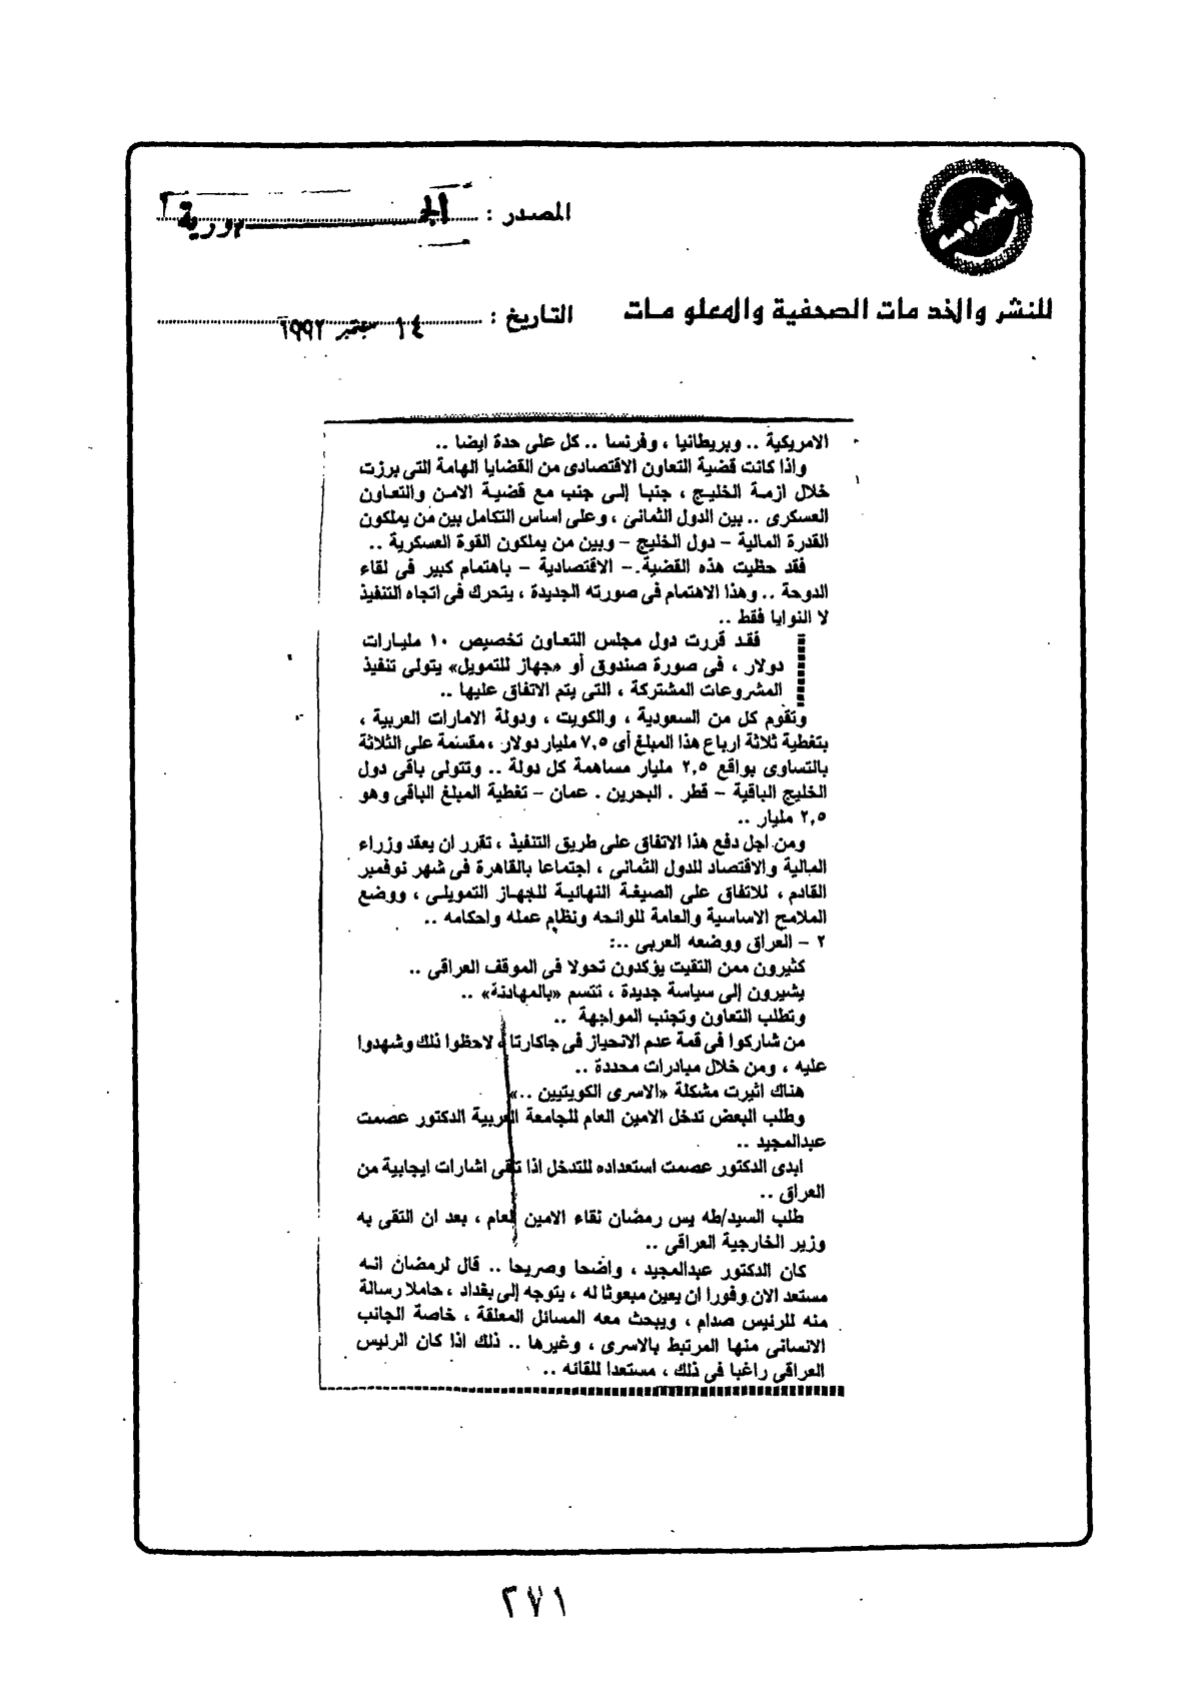 المصدر : الجمهورية
للنشر والخدمات الصحفية والمعلومات
التاريخ : ١٤ سبتمبر ١٩٩٢
الامريكية .. وبريطانيا ، وفرنسا .. كل على حدة ايضا ..
واذا كانت قضية التعاون الاقتصادى من القضايا الهامة التى برزت
خلال ازمة الخليج ، جنبا إلى جنب مع قضية الامن والتعاون
العسكرى .. بين الدول الثمانى ، وعلى اساس التكامل بين من يملكون
القدرة المالية - دول الخليج - وبين من يملكون القوة العسكرية ..
فقد حظيت هذه القضية - الاقتصادية - باهتمام كبير فى لقاء
الدوحة .. وهذا الاهتمام فى صورته الجديدة ، يتحرك فى اتجاه التنفيذ
لا النوايا فقط ..
فقد قررت دول مجلس التعاون تخصيص ١٠ مليارات
دولار ، فى صورة صندوق أو «جهاز للتمويل» يتولى تنفيذ
المشروعات المشتركة ، التى يتم الاتفاق عليها ..
وتقوم كل من السعودية ، والكويت ، ودولة الامارات العربية ،
بتغطية ثلاثة ارباع هذا المبلغ أى ٧,٥ مليار دولار ، مقسمة على الثلاثة
بالتساوى بواقع ٢,٥ مليار مساهمة كل دولة .. وتتولى باقى دول
الخليج الباقية - قطر . البحرين . عمان - تغطية المبلغ الباقى وهو
٢,٥ مليار ..
ومن اجل دفع هذا الاتفاق على طريق التنفيذ ، تقرر ان يعقد وزراء
المالية والاقتصاد للدول الثمانى ، اجتماعا بالقاهرة فى شهر نوفمبر
القادم ، للاتفاق على الصيغة النهائية للجهاز التمويلى ، ووضع
الملامح الاساسية والعامة للوائحه ونظام عمله واحكامه ..
٢ - العراق ووضعه العربى ..:
كثيرون ممن التقيت يؤكدون تحولا فى الموقف العراقى ..
يشيرون إلى سياسة جديدة ، تتسم «بالمهادنة» ..
وتطلب التعاون وتجنب المواجهة ..
من شاركوا فى قمة عدم الانحياز فى جاكارتا ، لاحظوا ذلك وشهدوا
عليه ، ومن خلال مبادرات محددة ..
هناك اثيرت مشكلة «الاسرى الكويتيين ..»
وطلب البعض تدخل الامين العام للجامعة العربية الدكتور عصمت
عبدالمجيد ..
ابدى الدكتور عصمت استعداده للتدخل اذا تلقى اشارات ايجابية من
العراق ..
طلب السيد/طه يس رمضان لقاء الامين العام ، بعد ان التقى به
وزير الخارجية العراقى ..
كان الدكتور عبدالمجيد ، واضحا وصريحا .. قال لرمضان انه
مستعد الان وفورا ان يعين مبعوثا له ، يتوجه إلى بغداد ، حاملا رسالة
منه للرئيس صدام ، ويبحث معه المسائل المعلقة ، خاصة الجانب
الانسانى منها المرتبط بالاسرى ، وغيرها .. ذلك اذا كان الرئيس
العراقى راغبا فى ذلك ، مستعدا للقائه ..
٢٧١